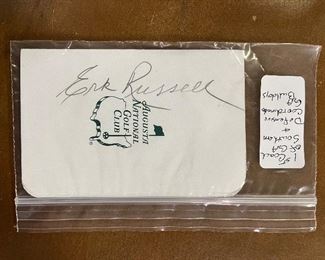 Erk Russell
AUGUSTA
NATIONAL
GOLF
CLUB
®
1st Coach
of GA
Southern
+
Defensive
Coordinator
GA
Bulldogs